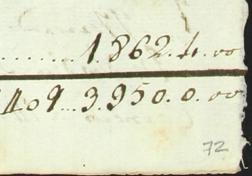 ........1.862.4.00
409...3.950.0.00
72